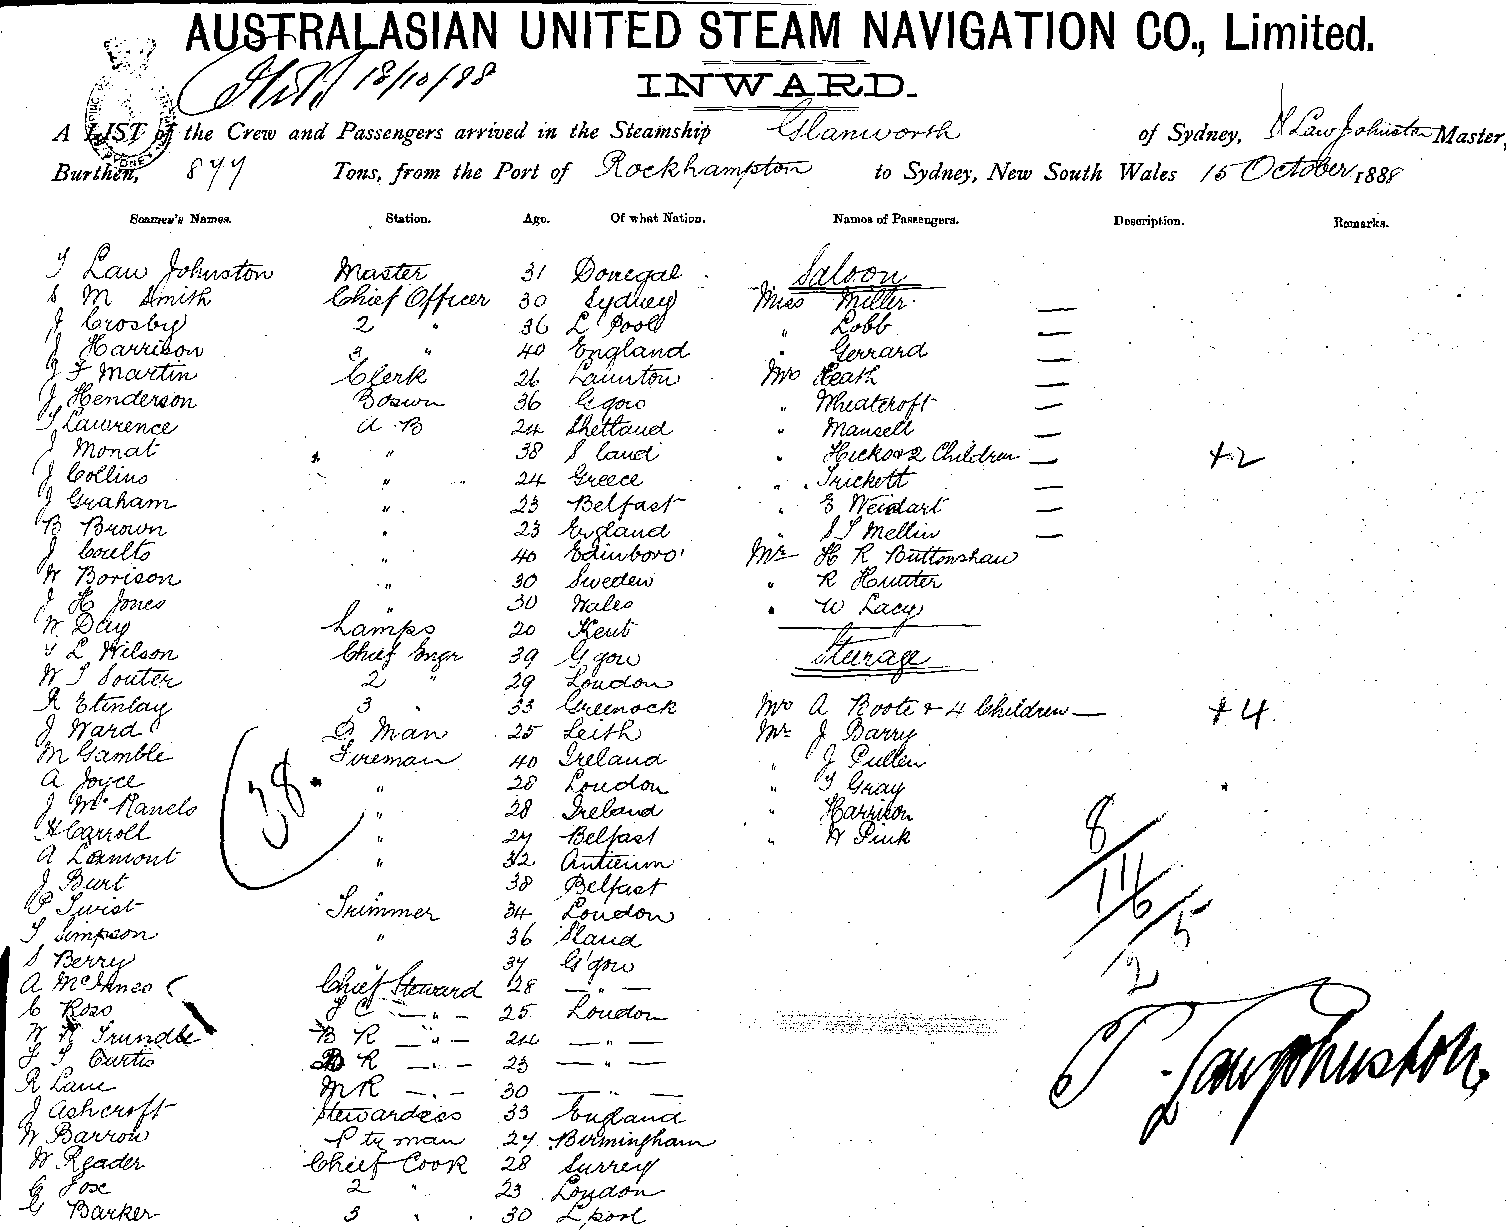 AUSTRALASIAN UNITED STEAM NAVIGATION CO., Limited.
18/10/88
INWARD.
A LIST of the Crew and Passengers arrived in the Steamship Glanworth of Sydney, T Law Johnston Master,
Burthen, 877 Tons, from the Port of Rockhampton to Sydney, New South Wales 15 October 1888
Seamen's Names. Station. Age. Of what Nation. Names of Passengers. Description. Remarks.
T Law Johnston Master 31 Donegal Saloon
S M Smith Chief Officer 30 Sydney Miss Miller —
J Crosby 2 " 36 L'Pool " Lobb —
J Harrison 3 " 40 England " Gerrard —
J F Martin Clerk 26 Launton Mrs Heath —
J Henderson Boswn 36 G'gow " Wheatcroft —
T Lawrence A.B 24 Shetland " Mansell —
J Monat " 38 S'land " Hicks & 2 Children — +2
J Collins " 24 Greece " Trickett —
J Graham " 23 Belfast " E Weidart —
B Brown " 23 England " S T Mellin —
J Coults " 40 Edinboro' Mr H R Buttonshaw
W Borison " 30 Sweden " R Hunter
J H Jones " 30 Wales " W Lacy
W Day Lamps 20 Kent
T L Wilson Chief Engr 39 G'gow Steerage
W T Souter 2 " 29 London
R Etinlay 3 " 33 Greenock Mrs A Boote & 4 Children — +4
J Ward D Man 25 Leith Mr J Barry
M Gamble Fireman 40 Ireland " J Pullen
A Joyce " 28 London " T Gray
J McRanels " 28 Ireland " Harrison
H Carroll " 27 Belfast " W Pink
A Lamont " 32 Antierim
J Burt " 38 Belfast
P Twist Trimmer 34 London
T Simpson " 36 S'land
S Berry " 37 G'gow
A McInnes Chief Steward 28 — " —
C Ross S C — " — 25 London
W R Trundle B R — " — 24 — " —
F T Curtis B R — " — 23 — " —
R Lane M R — " — 30 — " —
J Ashcroft Stewardess 33 England
W Barron P'ty man 27 Birmingham
W Reader Chief Cook 28 Surrey
G Fox 2 " 23 London
G Barker 3 " 30 L'pool
38.
8/11
6/5
2
T. Law Johnston.